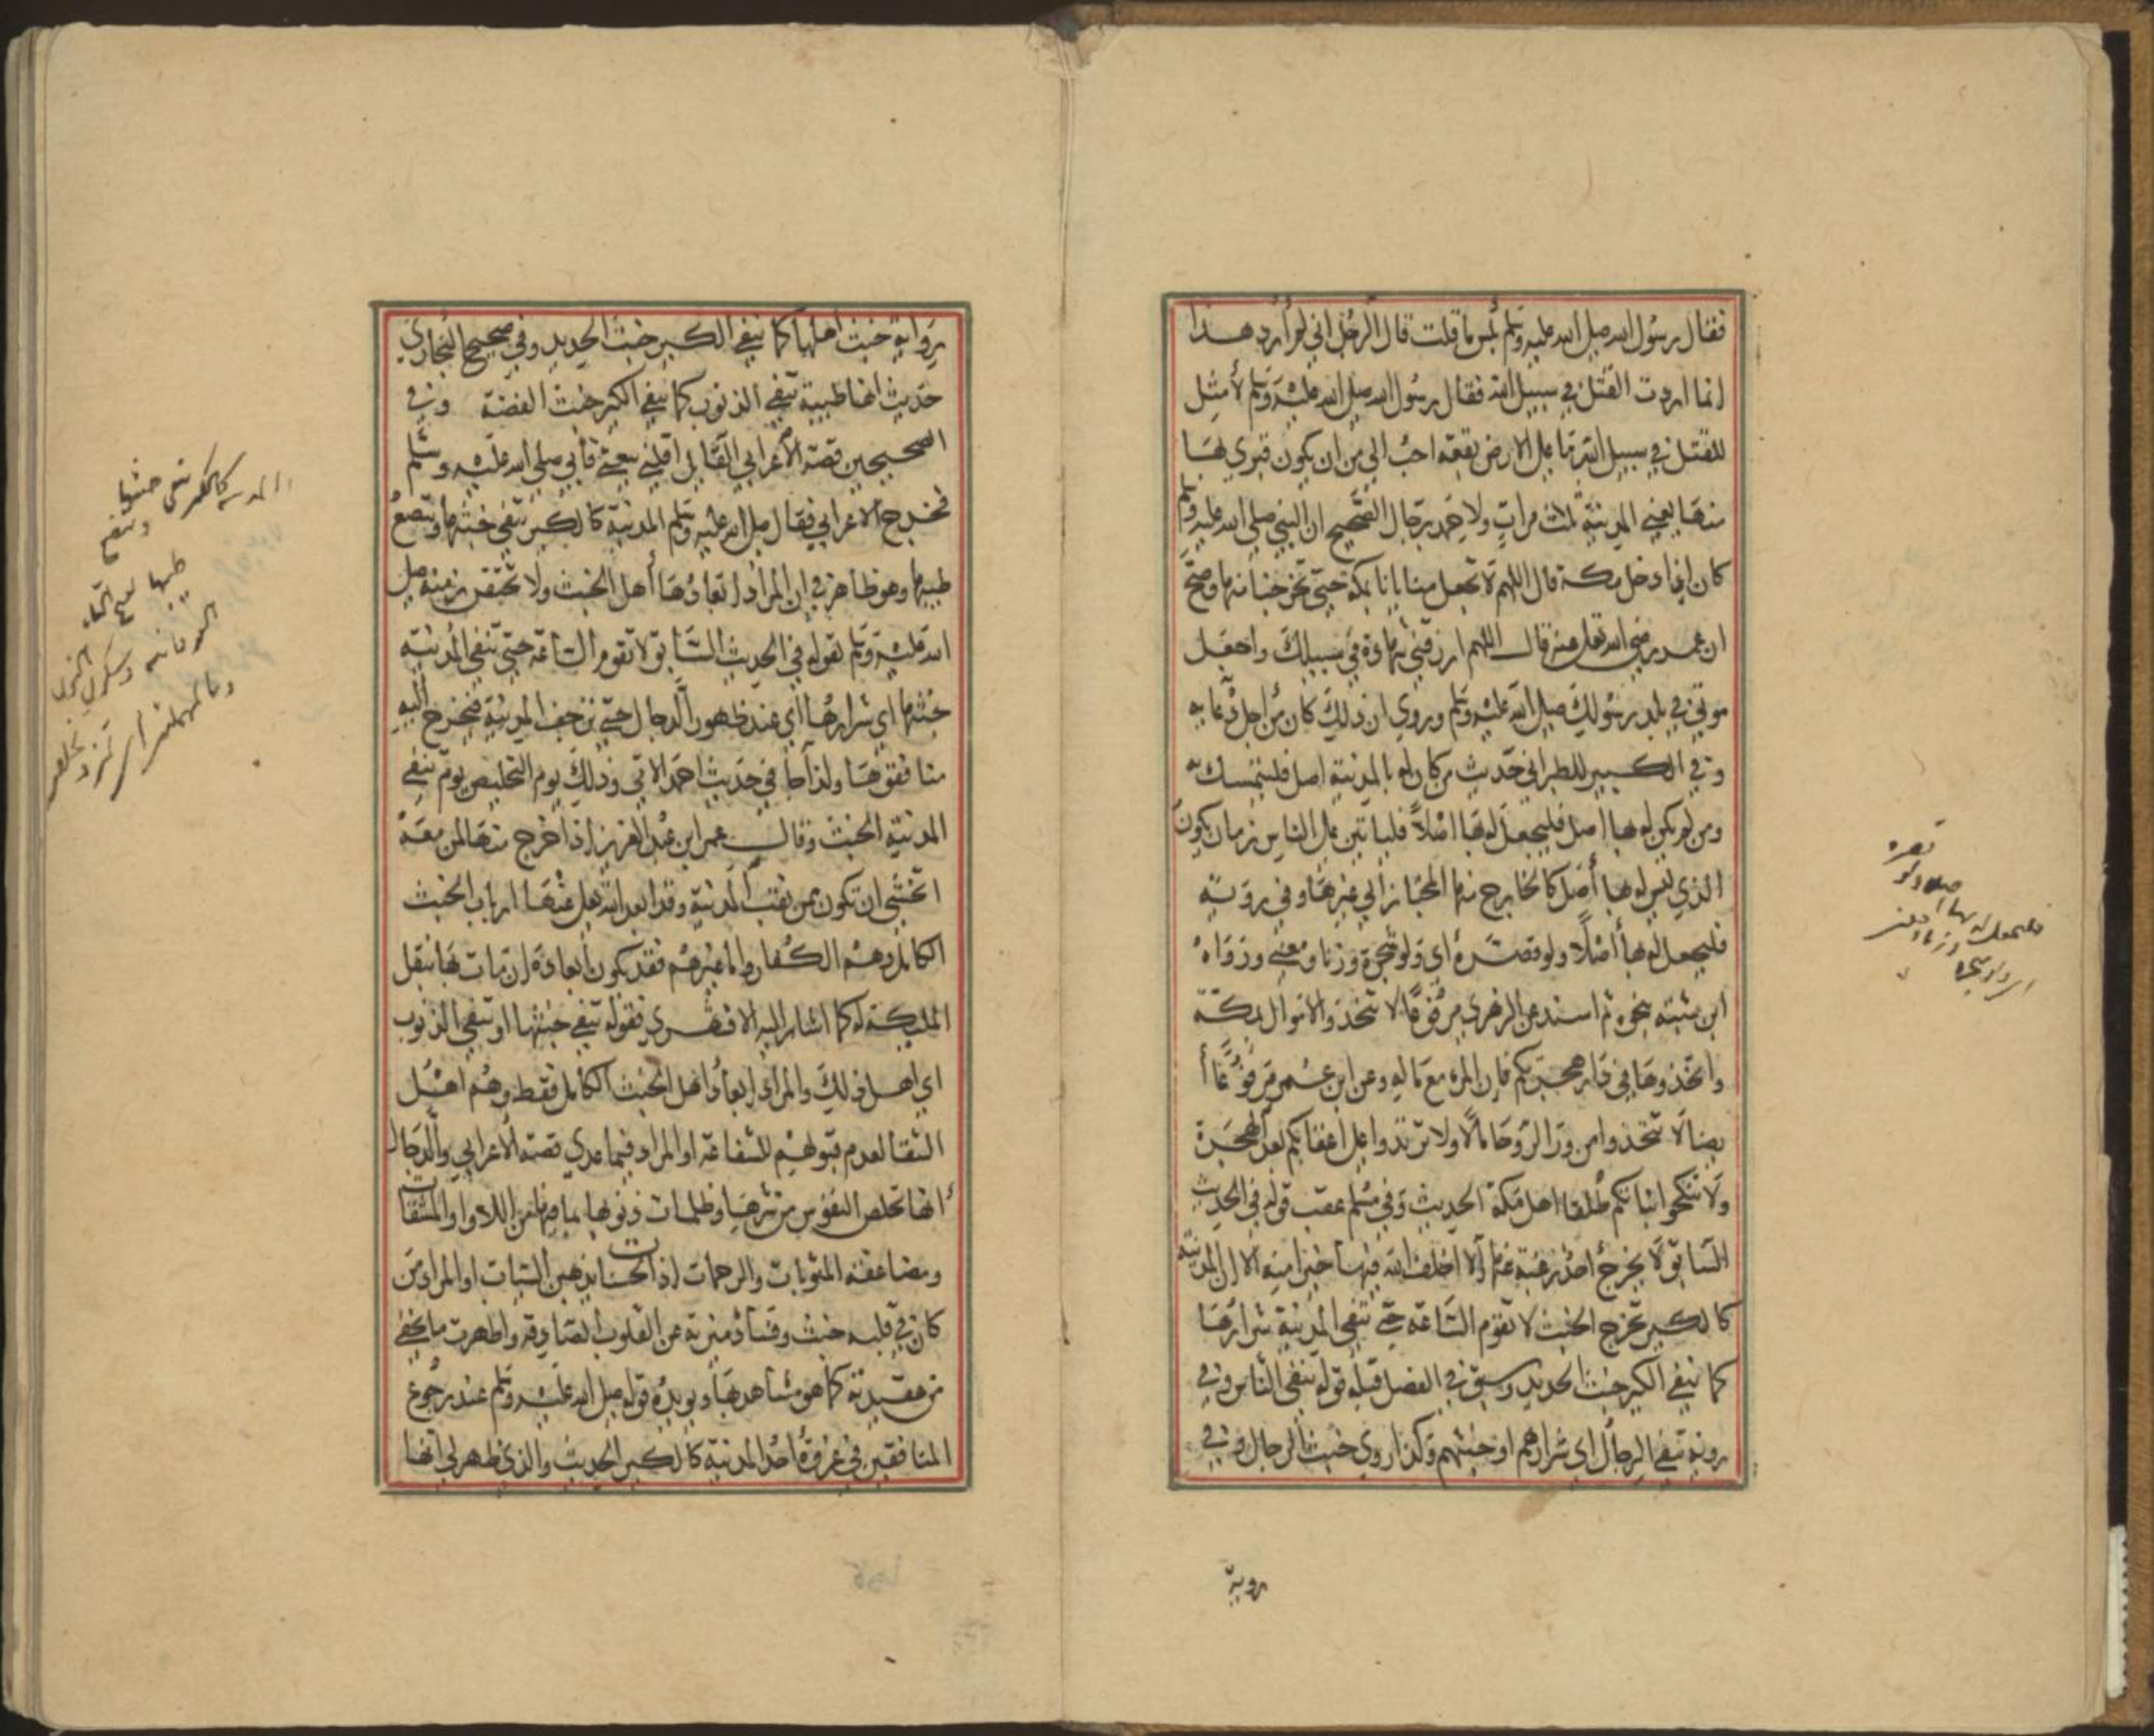 فقال رسول الله صلى الله عليه وسلم بئس ما قلت قال الرجل اني لم أرد هذا
انما اردت القتل في سبيل الله فقال رسول الله صلى الله عليه وسلم لا مثل
للقتل في سبيل الله ما على الارض بقعة احب الى من ان يكون قبري بها
منها يعني المدينة ثلاث مرات ولاحمد برجال الصحيح ان النبي صلى الله عليه وسلم
كان اذا دخل مكة قال اللهم لا تجعل منايانا بمكة حتى تخرجنا منها وصح
ان عمر رضي الله تعالى عنه قال اللهم ارزقني شهادة في سبيلك واجعل
موتي في بلد رسولك صلى الله عليه وسلم وروي ان ذلك كان من اجل دعايه
وفي الكبير للطبراني حديث من كان له بالمدينة اصل فليتمسك به
ومن لم يكن له بها اصل فليجعل له بها اصلاً فلياتين على الناس زمان يكون
الذي ليس له بها أصل كالخارج منها المجتاز الى غيرها وفي روية
فليجعل له بها أصلا ولو قصرة أي ولو شجرة وزنا ومعنى ورواه
ابن شبته بنحوه ثم اسند عن الزهري مرفوعًا لا تتخذوا الاموال بمكة
واتخذوها في دار هجرتكم فإن المرء مع ماله وعن ابن عمر مرفوعًا أ
يضا لا تتخذوا من ورا الروحا مالًا ولا ترتدوا على اعقابكم بعد الهجرة
ولا تنكحوا بناتكم طلقا اهل مكة الحديث وفي مسلم عقب قوله في الحديث
السابق لا يخرج احد رغبة عنها الا اخلف الله فيها خيرا منه الا ان المدينة
كالكير تخرج الخبث لا تقوم الساعة حتى تنفي المدينة شرارها
كما ينفي الكير خبث الحديد وسبق في الفصل قبله قوله تنفي الناس وفي
روية تنفي الرجال اي شرارهم او خبثهم وكذا روى خبث الرجال وفي
روية
رواية خبث اهلها كما ينفي الكير خبث الحديد وفي صحيح البخاري
حديث انها طيبة تنفي الذنوب كما ينفي الكير خبث الفضة وفي
الصحيحين قصة الاعرابي القايل اقلني بيعتي فأبى صلى الله عليه وسلم
فخرج الاعرابي فقال صلى الله عليه وسلم المدينة كالكير تنفي خبثها وتنصع
طيبها وهو ظاهر في ان المراد ابعادها أهل الخبث ولا تختص بزمنه صلى
الله عليه وسلم لقوله في الحديث السابق لا تقوم الساعة حتى تنفي المدينة
خبثها اي شرارها اي عند ظهور الدجال حتى ترجف المدينة فيخرج اليه
منافقوها ولذا جا في حديث احمد الاتي وذلك يوم التخليص يوم تنفي
المدينة الخبث وقال عمر ابن عبد العزيز اذا خرج منها لمن معه
اتخشى ان تكون ممن نفت المدينة وقد ابعد الله تعالى عنها ارباب الخبث
الكامل وهم الكفار واما غيرهم فقد يكون ابعاده ان مات بها بنقل
المليكة له كما اشار اليه الاقشهري فقوله تنفي خبثها او تنفي الذنوب
اي اهل ذلك والمراد إبعاد اهل الخبث الكامل فقط وهم اهل
الشقا لعدم قبولهم للشفاعة او المراد فيما عدى قصة الاعرابي والدجال
انها تخلص النفوس من شرها وظلمات ذنوبها بما فيها من اللاوا والمشقات
ومضاعفة المثوبات والرحمات اذ الحسنات يذهبن السيات او المراد من
كان في قلبه خبث وفساد ميزته عن القلوب الصادقة واظهرت ما يخفي
من عقيدته كما هو مشاهد بها ويويده قوله صلى الله عليه وسلم عند رجوع
المنافقين في غزوة أحد المدينة كالكير الحديث والذي ظهر لي انها